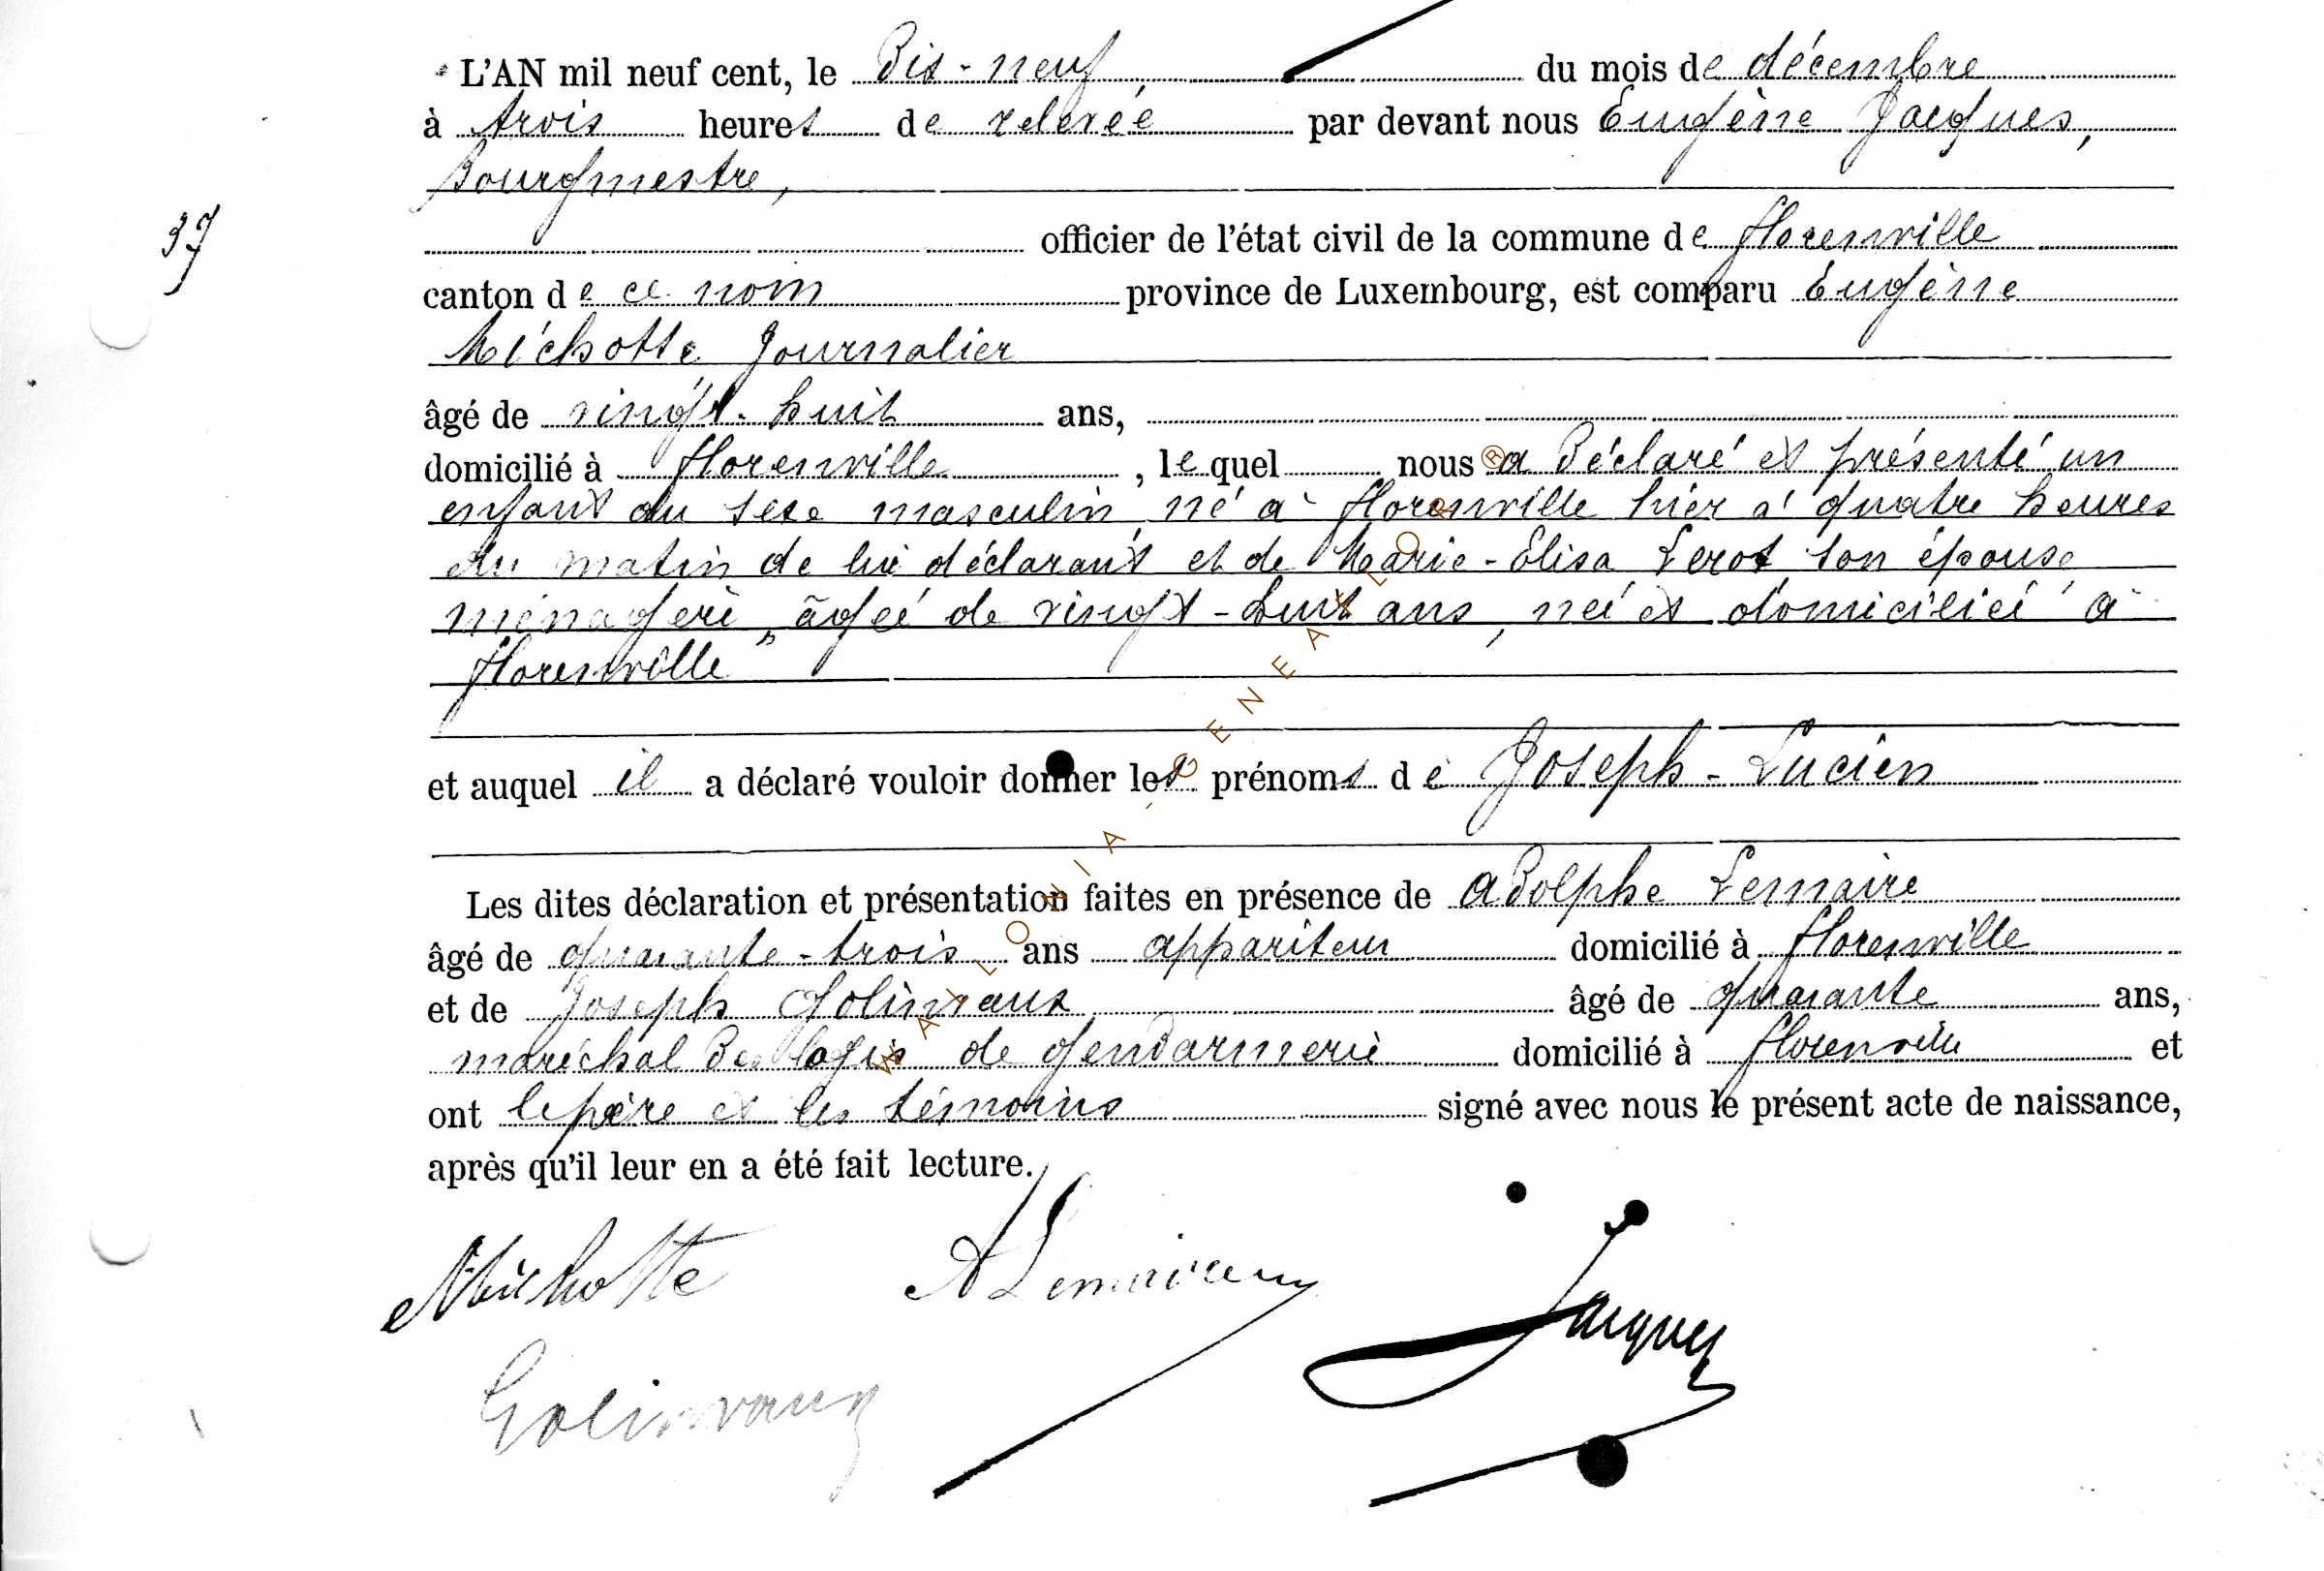 L'AN mil neuf cent, le Dix-neuf du mois de décembre
à trois heures de relevée par devant nous Eugène Jacques,
Bourgmestre,
officier de l'état civil de la commune de Florenville
37
canton de ce nom province de Luxembourg, est comparu Eugène
Michotte Journalier
âgé de vingt-huit ans,
domicilié à Florenville, lequel nous a Déclaré et présenté un
enfant du sexe masculin, né à Florenville hier à quatre heures
du matin de lui déclarant et de Marie-Elisa Lerot son épouse
ménagère, âgée de vingt-huit ans, né et domicilié à
Florenville
et auquel il a déclaré vouloir donner les prénoms de Joseph-Lucien
Les dites déclaration et présentation faites en présence de Adolphe Lemaire
âgé de quarante-trois ans appariteur domicilié à Florenville
et de Joseph Golinvaux âgé de quarante ans,
maréchal des logis de gendarmerie domicilié à Florenville et
ont le père et les témoins signé avec nous le présent acte de naissance,
après qu'il leur en a été fait lecture.
Michotte ALemaire Jacques
Golinvaux
WALLONIA-GENEALOR®